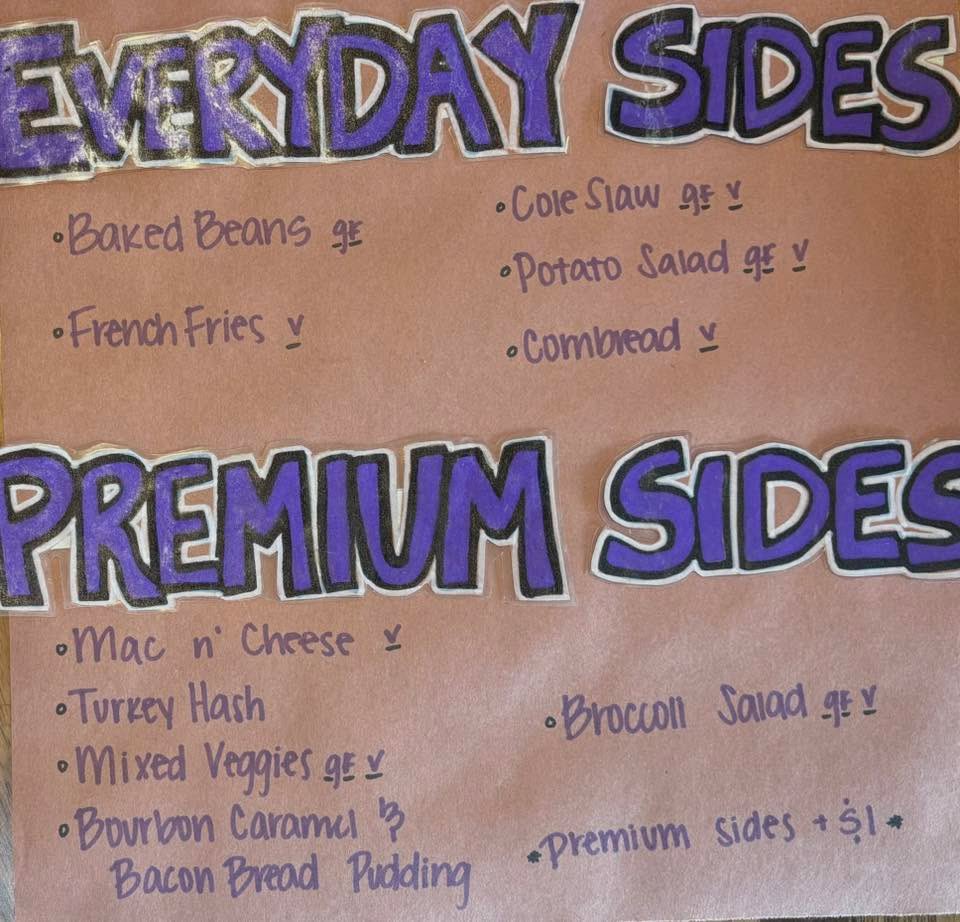 EVERYDAY SIDES
• Baked Beans gF
• French Fries V
• Cole Slaw gF V
• Potato Salad gF V
• Cornbread V
PREMIUM SIDES
• Mac n' Cheese V
• Turkey Hash
• Mixed Veggies gF V
• Bourbon Caramel &
Bacon Bread Pudding
• Broccoli Salad gF V
*Premium sides + $1*